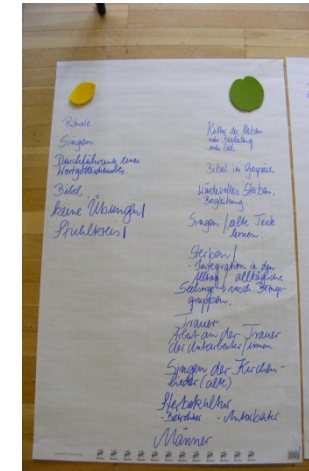 Rituale
Singen
Durchführung eines
Wortgottesdienstes
Bibel
keine Übungen!
Stuhlkreis!
Kultur des Lebens
Bibel im Gespräch
Würdevolles Sterben.
Begleitung
Singen / alte Texte
lernen.
Sterben /
Integration in den
Alltag / alltägliche
Seelsorge versch. Berufs-
gruppen.
Trauer
Arbeit an der Trauer
der Mitarbeiter/innen
Singen der Kirchen-
lieder (alte)
Sterbekultur
- Bewohner - Mitarbeiter
Männer